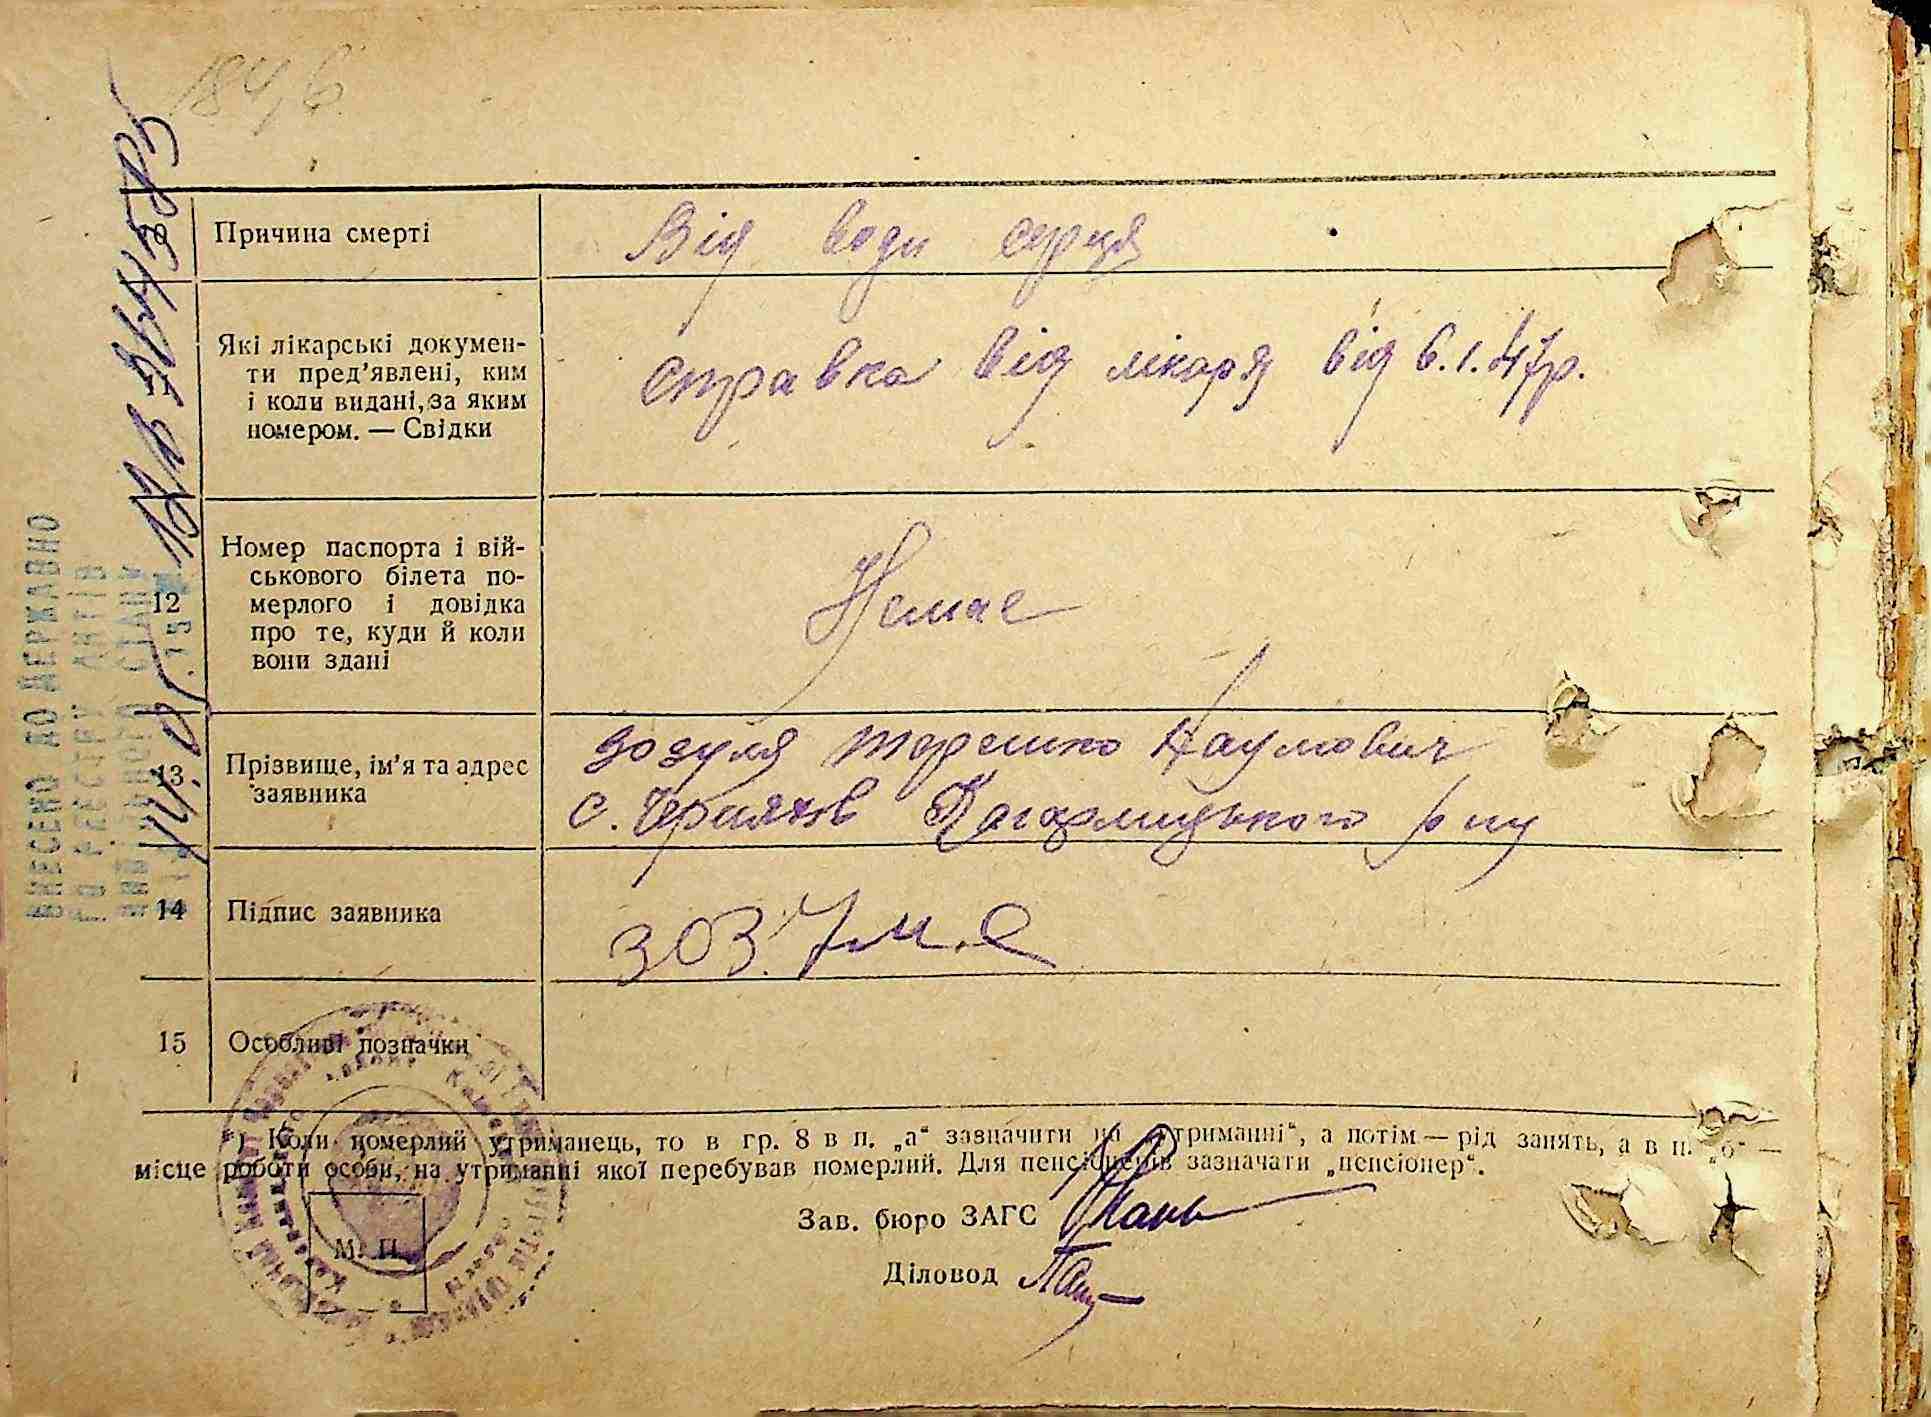 184, б
10 Причина смерті Від води серця
11 Які лікарські докумен-
ти пред'явлені, ким
і коли видані, за яким
номером. — Свідки
справка від лікаря від 6.1.47р.
12 Номер паспорта і вій-
ськового білета по-
мерлого і довідка
про те, куди й коли
вони здані
Немає
13 Прізвище, ім'я та адрес
заявника
Зозуля Терешко Наумович
с. Черняхів Кагарлицького р-ну
14 Підпис заявника
15 Особливі позначки
*) Коли померлий утриманець, то в гр. 8 в п. „а“ зазначити „на утриманні“, а потім — рід занять, а в п. „б“ —
місце роботи особи, на утриманні якої перебував померлий. Для пенсіонерів зазначати „пенсіонер“.
М. П.
Зав. бюро ЗАГС
Діловод
ВНЕСЕНО ДО ДЕРЖАВНО
ГО РЕЄСТРУ АКТІВ